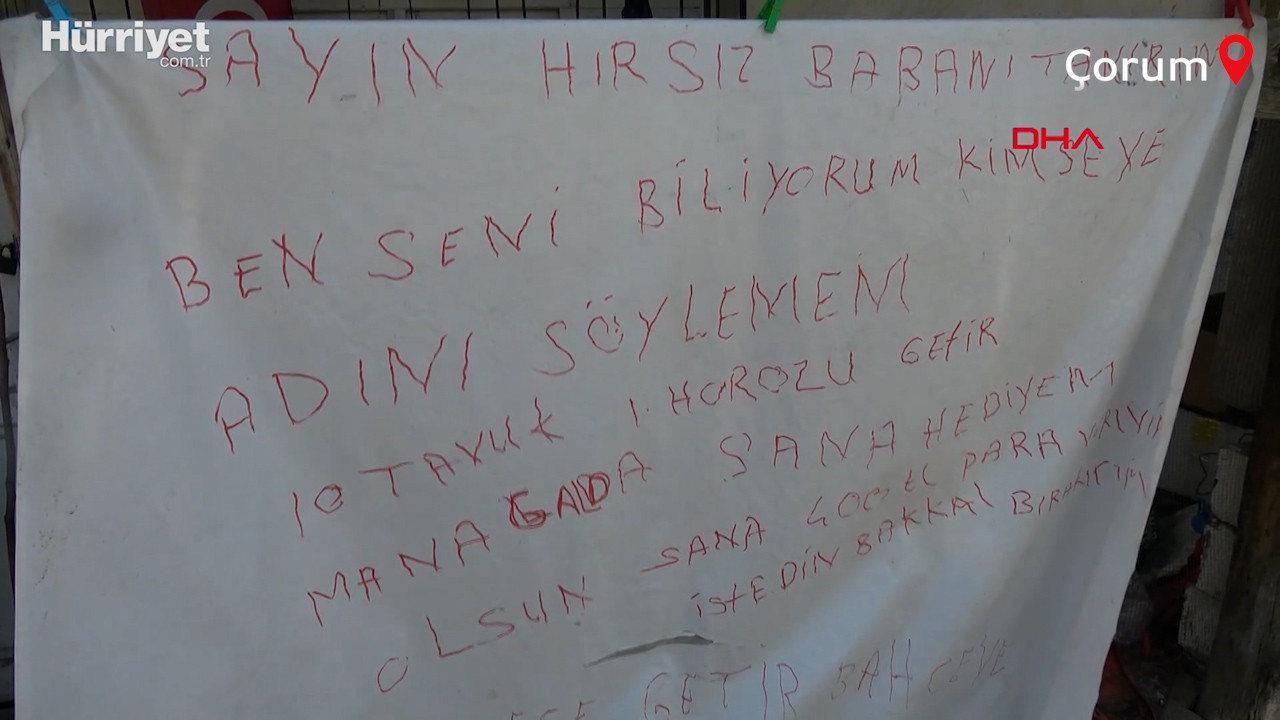 Hürriyet
.com.tr
Çorum
DHA
SAYIN HIRSIZ BABANI
BEN SENİ BİLİYORUM KİMSEYE
ADINI SÖYLEMEM
10 TAVUK 1. HOROZU GETİR
MANAGALDA SANA HEDİYEM
OLSUN SANA PARA
İSTEDİN BAKKAL BIRAKTIM
GETİR BAHCEYE